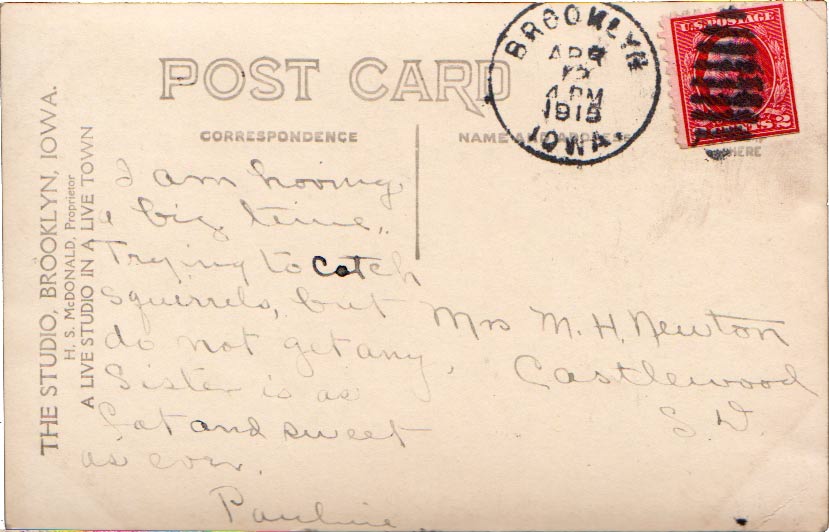 POST CARD
CORRESPONDENCE
NAME AND ADDRESS
HERE
BROOKLYN
APR
4 PM
1915
IOWA.
U.S. POSTAGE
2
THE STUDIO, BROOKLYN, IOWA.
H. S. McDONALD, Proprietor
A LIVE STUDIO IN A LIVE TOWN
I am having
a big time.
Trying to catch
squirrels, but
do not get any.
Sister is as
fat and sweet
as ever.
Pauline
Mrs M. H. Newton
Castlewood
S. D.